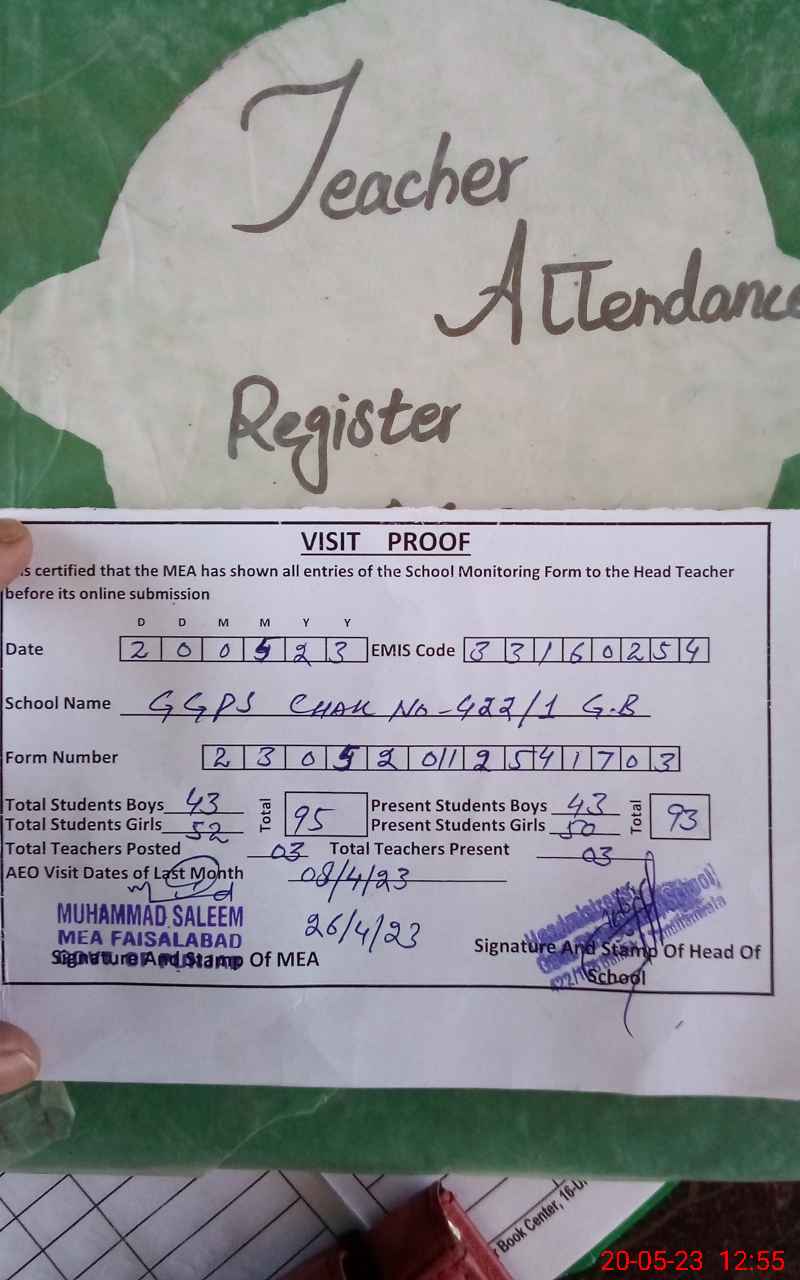 Teacher
Attendance
Register
VISIT PROOF
is certified that the MEA has shown all entries of the School Monitoring Form to the Head Teacher
before its online submission
D D M M Y Y
Date 2 0 0 5 2 3 EMIS Code 3 3 1 6 0 2 5 4
School Name GGPS CHAK No-422/1 G.B
Form Number 2 3 0 5 2 0 1 2 5 4 1 7 0 3
Total Students Boys 43 Total 95 Present Students Boys 43 Total 93
Total Students Girls 52 Present Students Girls 50
Total Teachers Posted 03 Total Teachers Present 03
AEO Visit Dates of Last Month 08/4/23
26/4/23
MUHAMMAD SALEEM
MEA FAISALABAD
GOVT. OF PUNJAB
Signature And Stamp Of MEA
Signature And Stamp Of Head Of
School
Book Center, 16-U
20-05-23 12:55